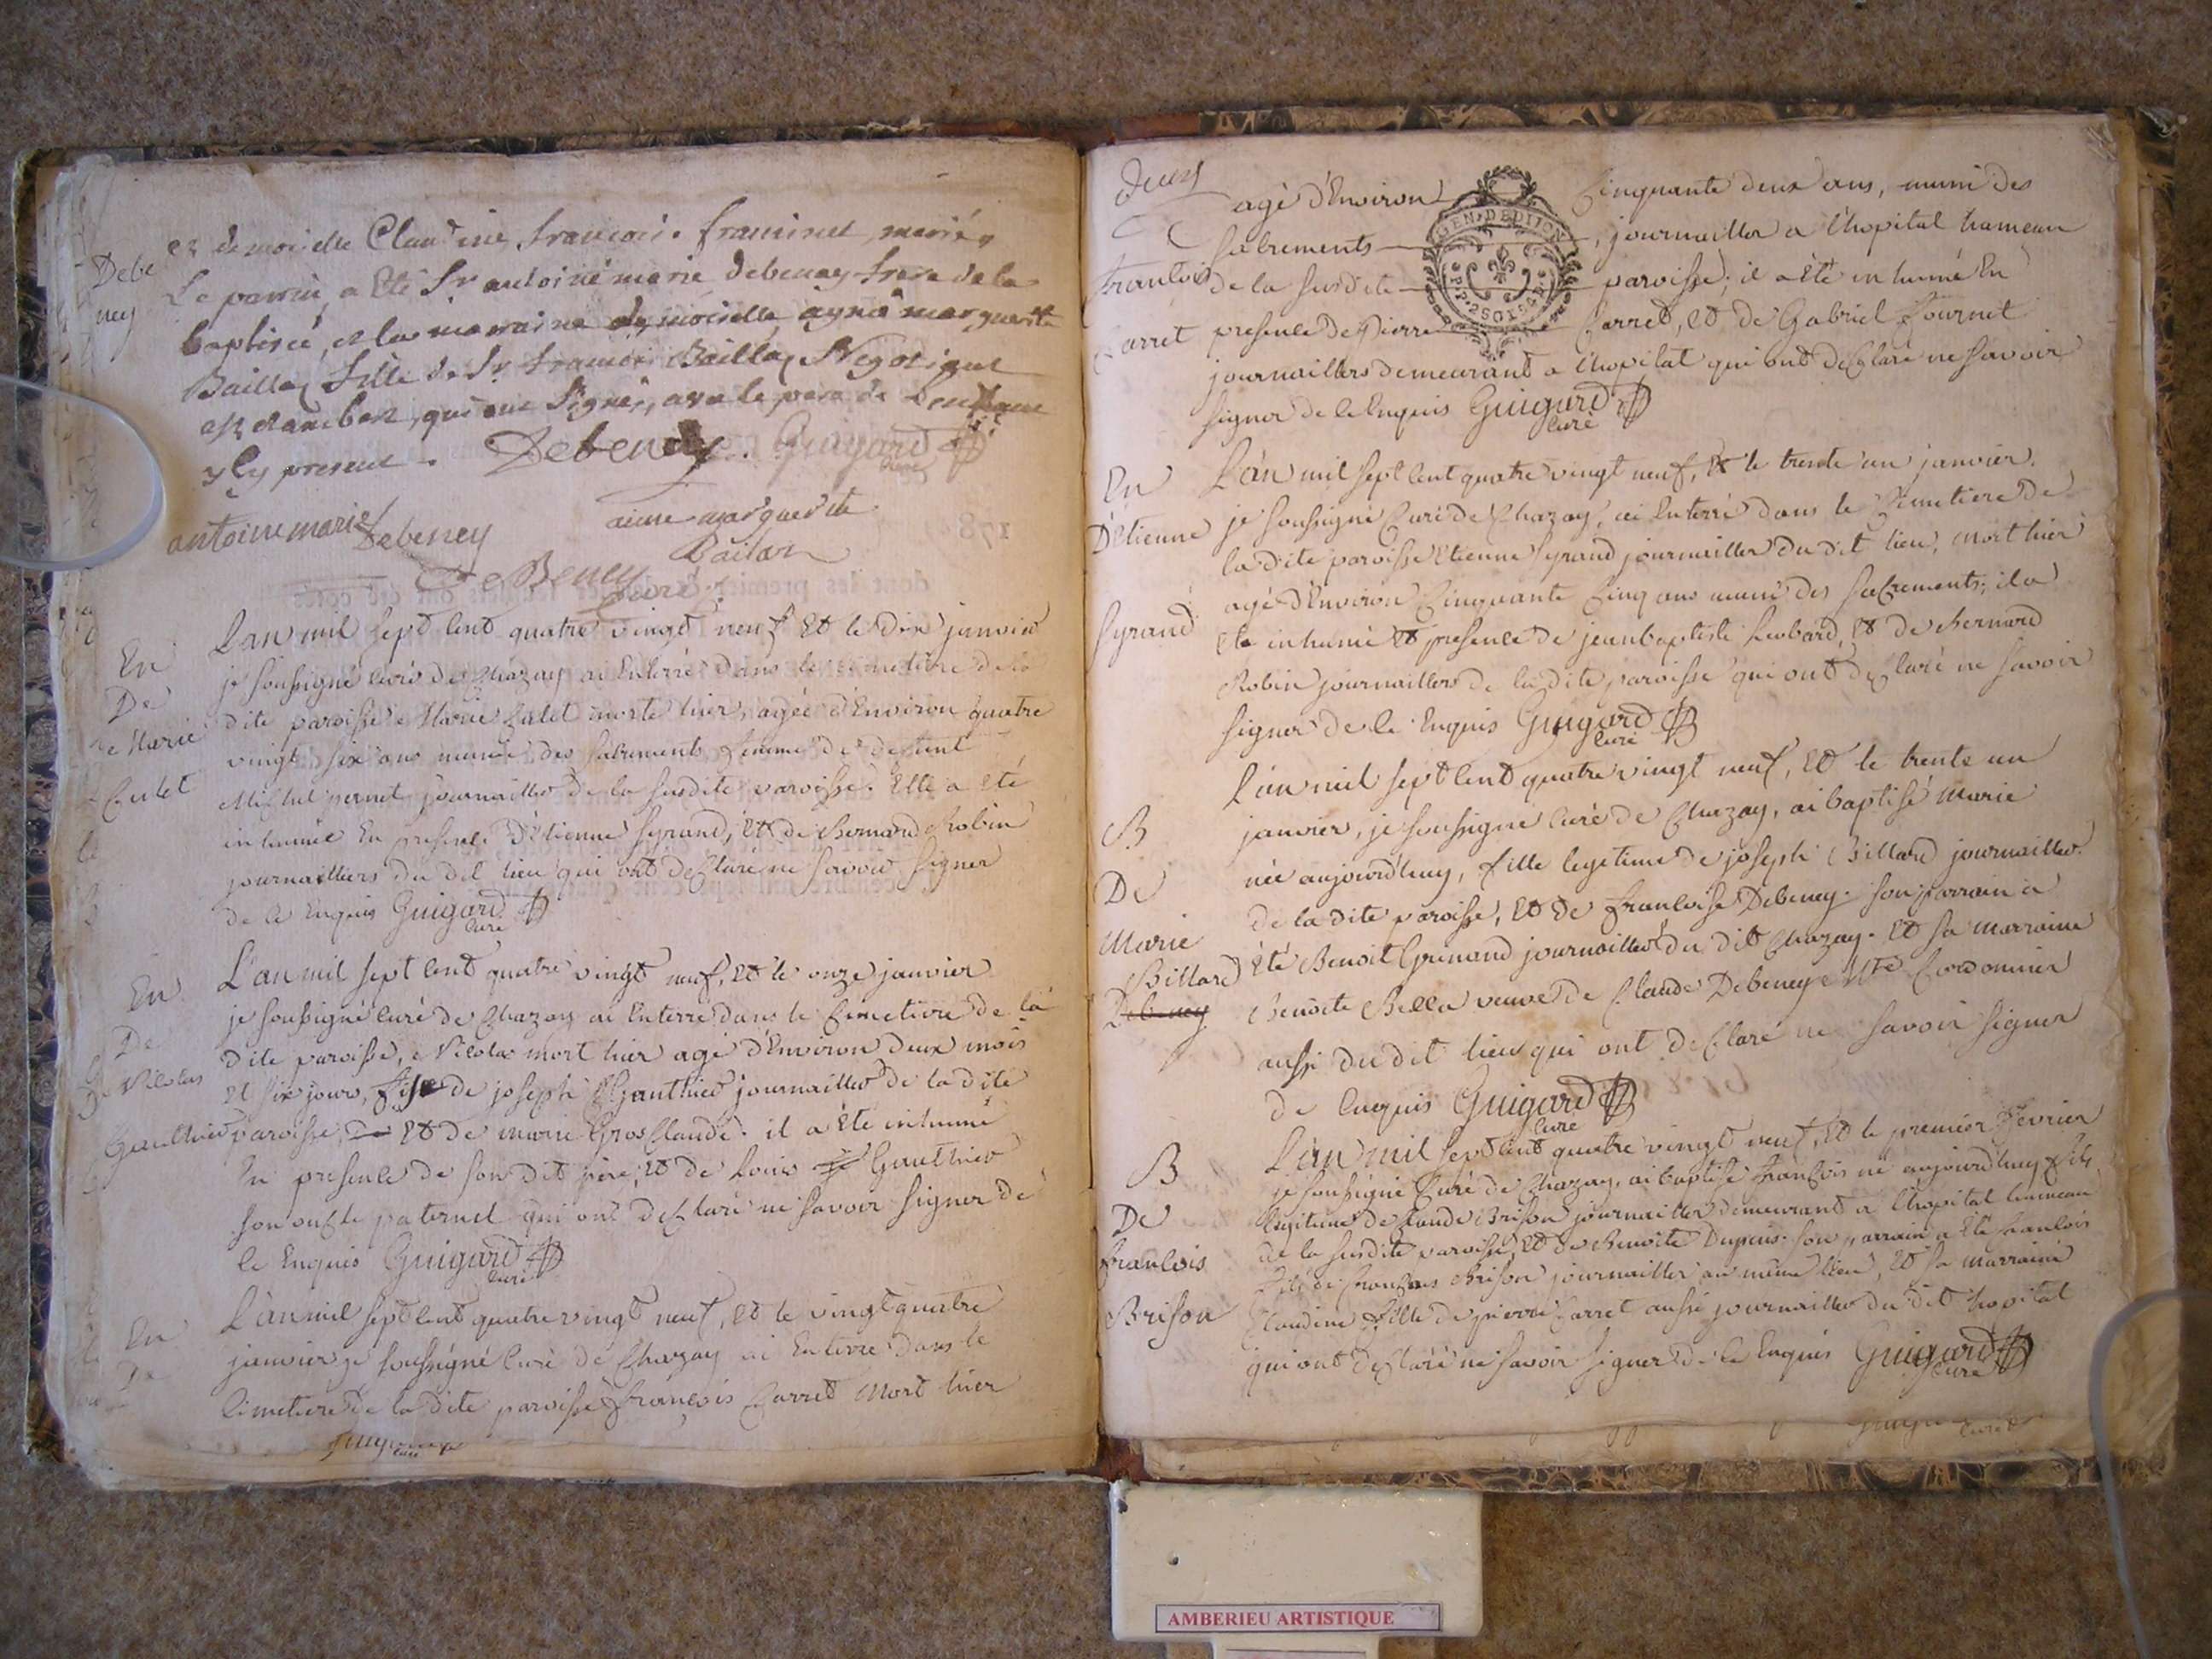 Debe
ney
et demoiselle Claudine françoise franiinet mariés
Le parrin a Eté Sr antoine marie debenay frere de la
baptisée, et la marraine demoiselle ayné marguerite
Baillaz fille de Sr francoi Baillaz Negotiant
qui ont Signés, avec le pere de
y present. Debeney. Guigard
curé
antoine marie Debeney
aime marguerite
Bailan
De Beney
Curé
En
De
Marie
Culet
L'an mil sept cent quatre vingt neuf Et le dix janvier
je soussigné curé de Chazay ai Enterré dans le cimetiere de la
dite paroisse Marie Culet morte hier, agée d'Environ quatre
vingt six ans munie des sacrements femme de deffunt
Michel pernet journaillier de la susdite paroisse. Elle a eté
inhumée En presence d'Etienne Syrand, Et de Bernard Robin
journailliers du dit lieu qui ont declaré ne savoir signer
de ce Enquis Guigard
Curé
En
De
Nicolas
Gauthier
L'an mil sept cent quatre vingt neuf, Et le onze janvier
je soussigné curé de Chazay ai Enterre dans le Cimetiere de la
dite paroisse, Nicolas mort hier agé d'Environ deux mois
Et six jours, fils de joseph Gauthier journaillier de la dite
paroisse, de Et de marie Grosclaude. il a été inhumé
En presence de son dit pere, Et de Louis Gauthier
son oncle paternel qui ont declaré ne savoir signer de
ce Enquis Guigard
Curé
En
De
L'an mil sept cent quatre vingt neuf, Et le vingt quatre
janvier je soussigné Curé de Chazay ai Enterre dans le
Cimetiere de la dite paroisse françois Carret Mort hier
Deux
françois
Carret
agé d'Environ Cinquante deux ans, muni des
sacrements, journaillier a l'hopital hameau
de la susdite paroisse; il a été inhumé En
presence de pierre Carret, Et de Gabriel Journet
journailliers demeurant a l'hopital qui ont declaré ne savoir
signer de ce Enquis Guigard
Curé
GEN. DE DIJON
En
D'Etienne
Syrand
L'an mil sept cent quatre vingt neuf, Et le trente un janvier.
je soussigné Curé de Chazay, ai Enterré dans le Cimetiere de
la dite paroisse Etienne Syrand journaillier du dit lieu, mort hier
agé d'Environ Cinquante Cinq ans muni des sacrements; il a
Eté inhumé Et presence de jean baptiste Leobard, Et de Bernard
Robin journailliers de la dite paroisse qui ont declaré ne savoir
signer de ce Enquis Guigard
Curé
B
De
Marie
Billard
Debeney
L'an mil sept cent quatre vingt neuf, Et le trente un
janvier, je soussigné Curé de Chazay, ai baptisé Marie
née aujourd'huy, fille legitime de joseph Billard journaillier
de la dite paroisse, Et de françoise Debeney. son parrain a
été Benoit Grinand journaillier du dit Chazay. Et sa marraine
Benoite Bella veuve de Claude Debeney Mtre Cordonnier
aussi du dit lieu qui ont declaré ne savoir signer
de ce enquis Guigard
Curé
B
De
françois
Brison
L'an mil sept cent quatre vingt neuf, Et le premier Fevrier
je soussigné Curé de Chazay, ai baptisé françois né aujourd'huy fils
legitime de Claude Brison journaillier demeurant a l'hopital hameau
de la susdite paroisse, Et de Benoite Dupuis. son parrain a Eté françois
fils de françois Brison journaillier au même lieu, Et sa marraine
Claudine fille de pierre Carret aussi journaillier du dit hopital
qui ont declaré ne savoir signer de ce Enquis Guigard
Curé
AMBERIEU ARTISTIQUE